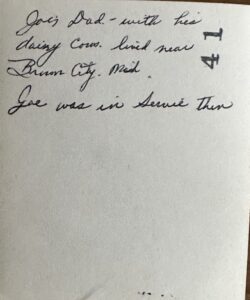 Joe's Dad - with his
dairy Cow. lived near
Brown City. Mich.
Joe was in Servie then
41